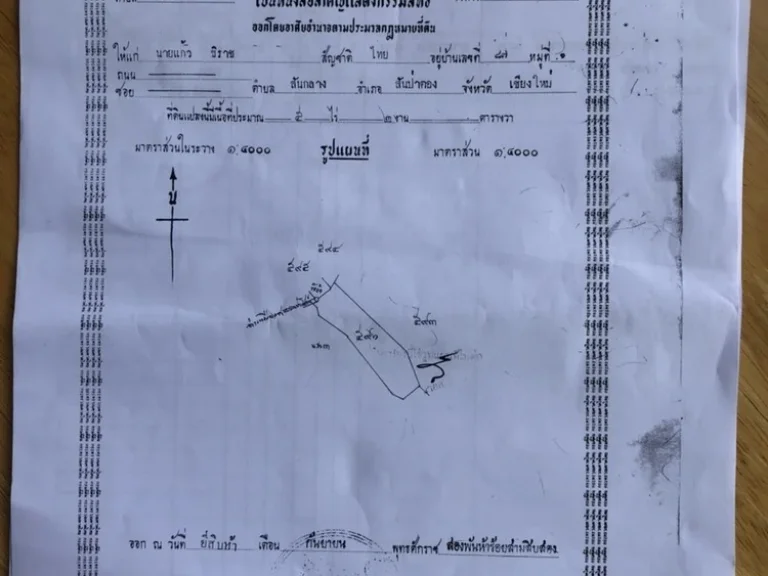 เป็นหนังสือสำคัญแสดงกรรมสิทธิ์
ออกโดยอาศัยอำนาจตามประมวลกฎหมายที่ดิน
ให้แก่ นายแก้ว สัญชาติ ไทย อยู่บ้านเลขที่ ๘๗ หมู่ที่ ๑
ถนน
ซอย ตำบล สันกลาง อำเภอ สันป่าตอง จังหวัด เชียงใหม่
ที่ดินแปลงนี้มีเนื้อที่ประมาณ ๕ ไร่ ๒ งาน ตารางวา
มาตราส่วนในระวาง ๑:๔๐๐๐ รูปแผนที่ มาตราส่วน ๑:๔๐๐๐
น
๕๙๔
๕๙๕
๕๙๓
๕๙๑
ออก ณ วันที่ ยี่สิบห้า เดือน กันยายน พุทธศักราช สองพันห้าร้อยสามสิบสอง